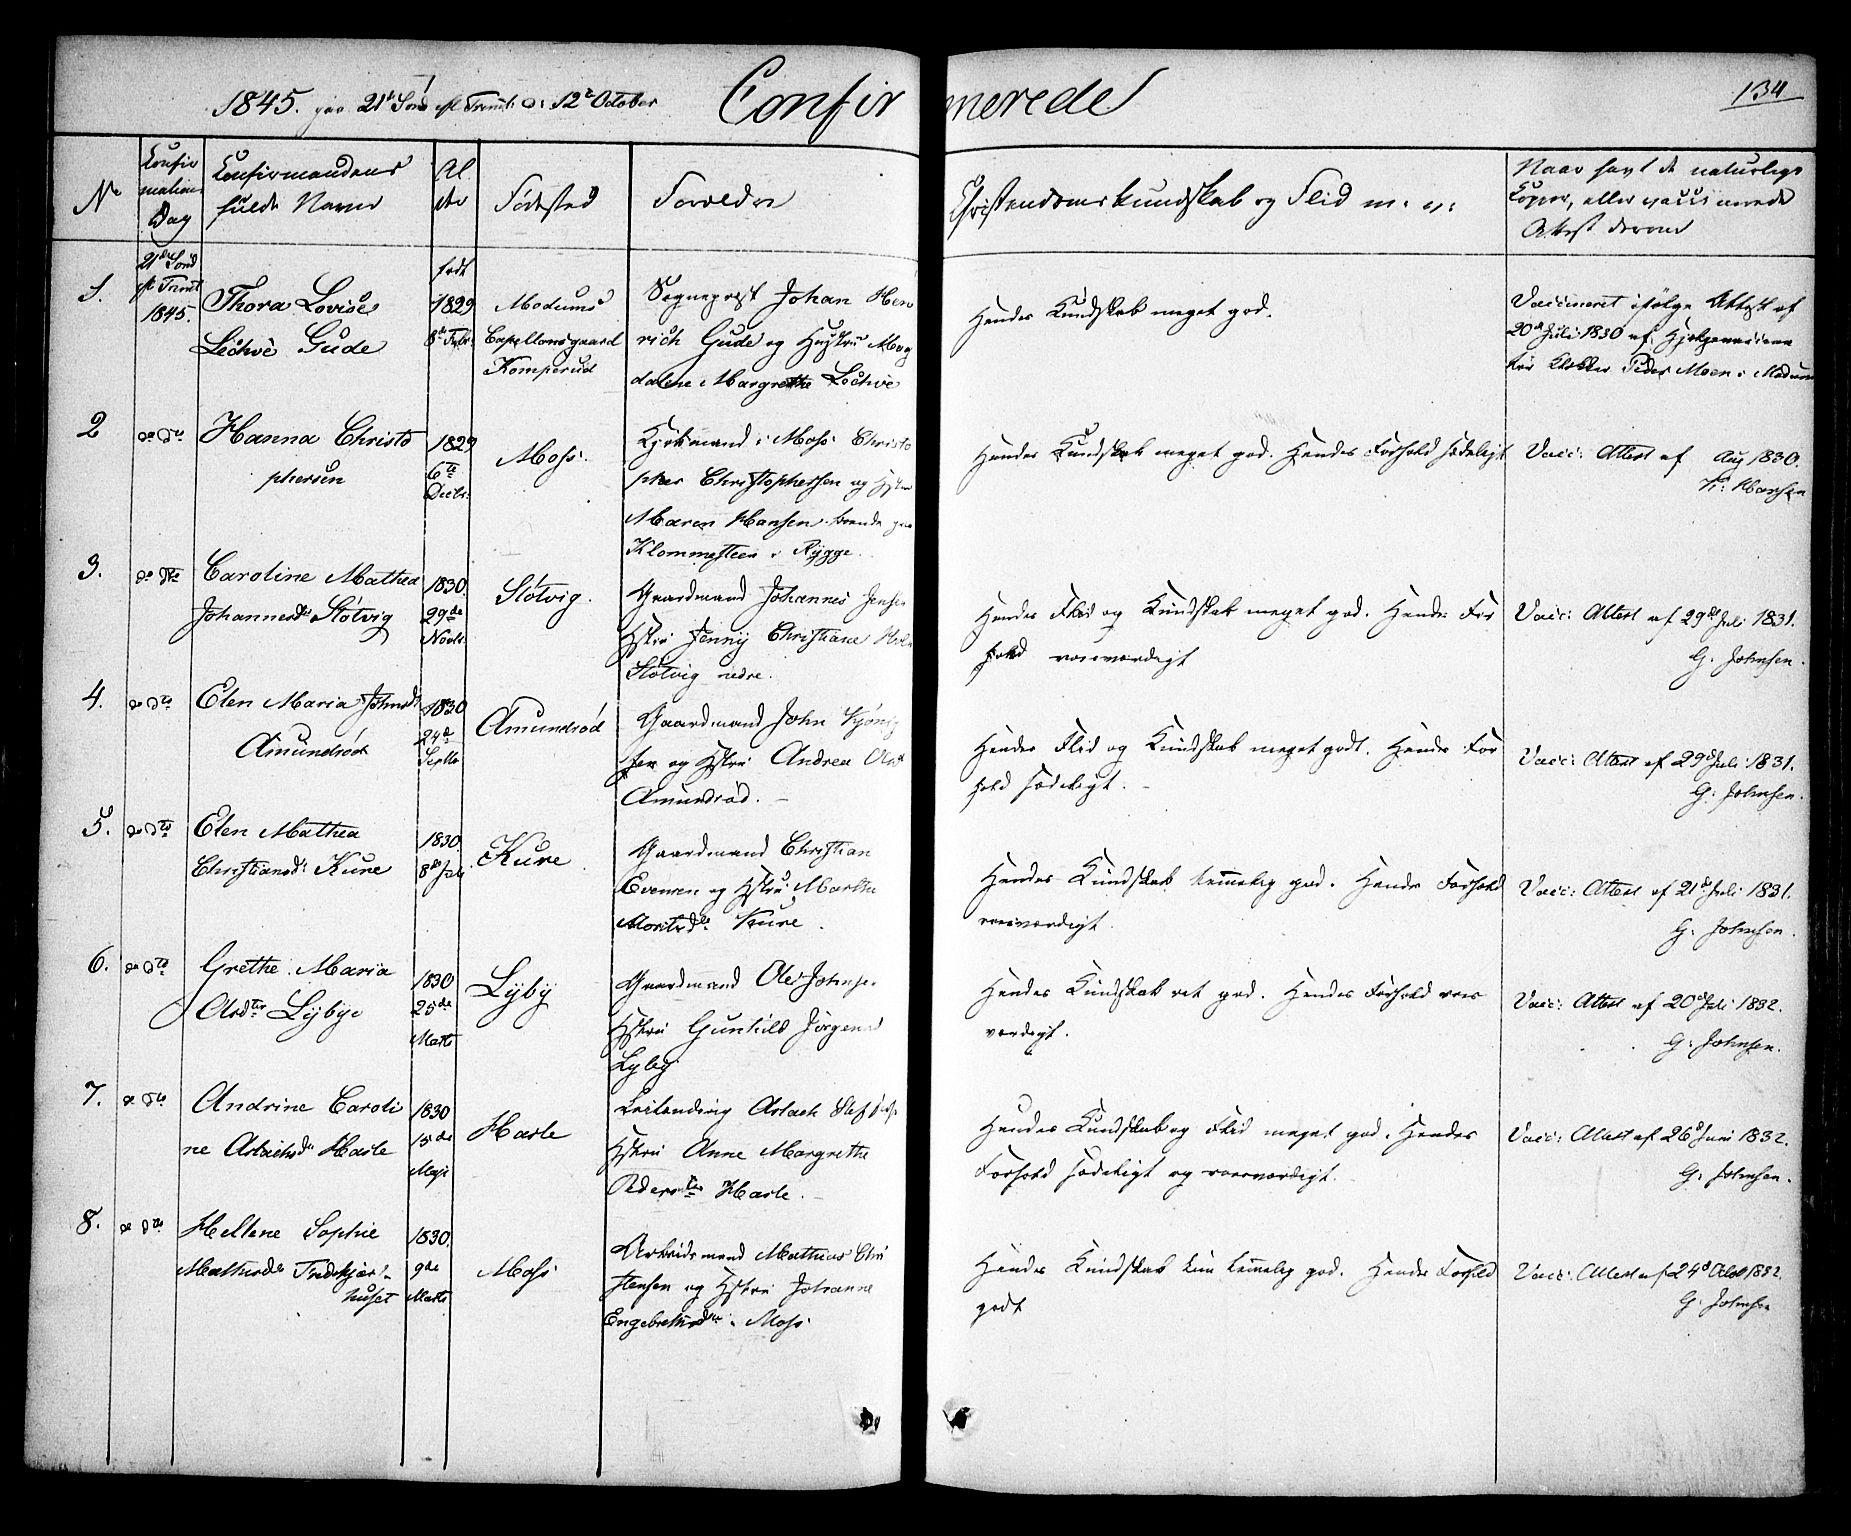 1845. paa 21de Sønd ef. Trinit: o: 12te October
Confirmerede
134
No
Konfirmations Dag
Konfirmandens fulde Navn
Alder
Fødested
Forældre
Christendomskundskab og Flid m. v:
Naar havt de naturlige Kopper, eller vaccinerede Attest derom
1.
21de Sønd ef. Trinit 1845.
Thora Lovise
Lechve Gude
født
1829
8de Febr:
Modums
Capellansgaard
Komperud
Sognepræst Johan Hen
rich Gude og Hustru Mag
dalene Margrethe Lechve
Hendes Kundskab meget god.
Vaccineret ifølge Attest af
20de Juli 1830 af
Klokker Peder Moen i Modum
2
do Do
Hanna Christo
phersen
1829
6te
Decbr:
Moss.
i Moss Christo
pher Christophersen og Hstru
Maren Hansen boende paa
Klommesteen i Rygge.
Hendes Kundskab meget god. Hendes Forhold sædeligt
Vacc: Attest af Aug 1830.
Hansen
3.
do Do
Caroline Mathea
Johannesdtr Støtvig
1830.
29de
Novbr.
Støtvig.
Gaardmand Johannes Jensen
Hstru Jenny Christiane
Støtvig nedre.
Hendes Flid og Kundskab meget god. Hendes For
hold roesværdigt
Vacc: Attest af 29de Juli 1831.
G. Johnsen.
4.
do Do
Elen Maria Johnsdtr
Amundrød
1830
24de
Septbr
Amundrød
Gaardmand John
og Hstru Andrea
Amundrød. –
Hendes Flid og Kundskab meget godt. Hendes For
hold sædeligt. –
Vacc: Attest af 29de Juli 1831.
G: Johnsen.
5.
do Do
Elen Mathea
Christiansd: Kure
1830.
8de Juli
Kure
Gaardmand Christian
Evensen og Hstru Marthe
Moritsdtr Kure.
Hendes Kundskab temmelig god. Hendes Forhold
roesværdigt.
Vacc: Attest af 21de Juli 1831.
G. Johnsen.
6.
do Do
Grethe Maria
Olsdtr Lybye
1830
25de
Marts
Lyby
Gaardmand Ole Johnsen
Hstru Gunhild Jørgensd
Lyby
Hendes Kundskab ret god. Hendes Forhold roes
værdigt.
Vacc: Attest af 20de Juli 1832.
G: Johnsen.
7.
do Do
Andrine Caroli
ne Aslachsdr Hasle
1830
15de
Maji
Hasle
Leilending Aslach
Hstru Anne Margrethe
Pedersdtr Hasle. –
Hendes Kundskab og Flid meget god. Hendes
Forhold sædeligt og roesværdigt.
Vacc: Attest af 26de Juni 1832.
G. Johnsen.
8.
do Do
Hellene Sophie
Mathisdtr Fredskjær-
huset
1830.
9de
Marts
Moss
Arbeidsmand Mathias Chri
stensen og Hstru Johanne
Engebretsdtr i Moss.
Hendes Kundskab kun temmelig god. Hendes Forhold
godt
Vacc: Attest af 24de Octob 1832.
G. Johnsen